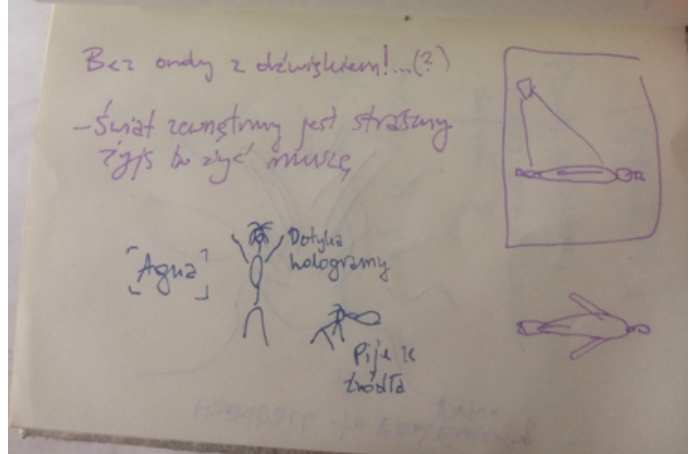 Bez ondy z dźwiękiem!...(?)
-Świat zewnętrzny jest straszny
żyję bo żyć muszę
[Aqua]
Dotyka
hologramy
Pije ze
źródła